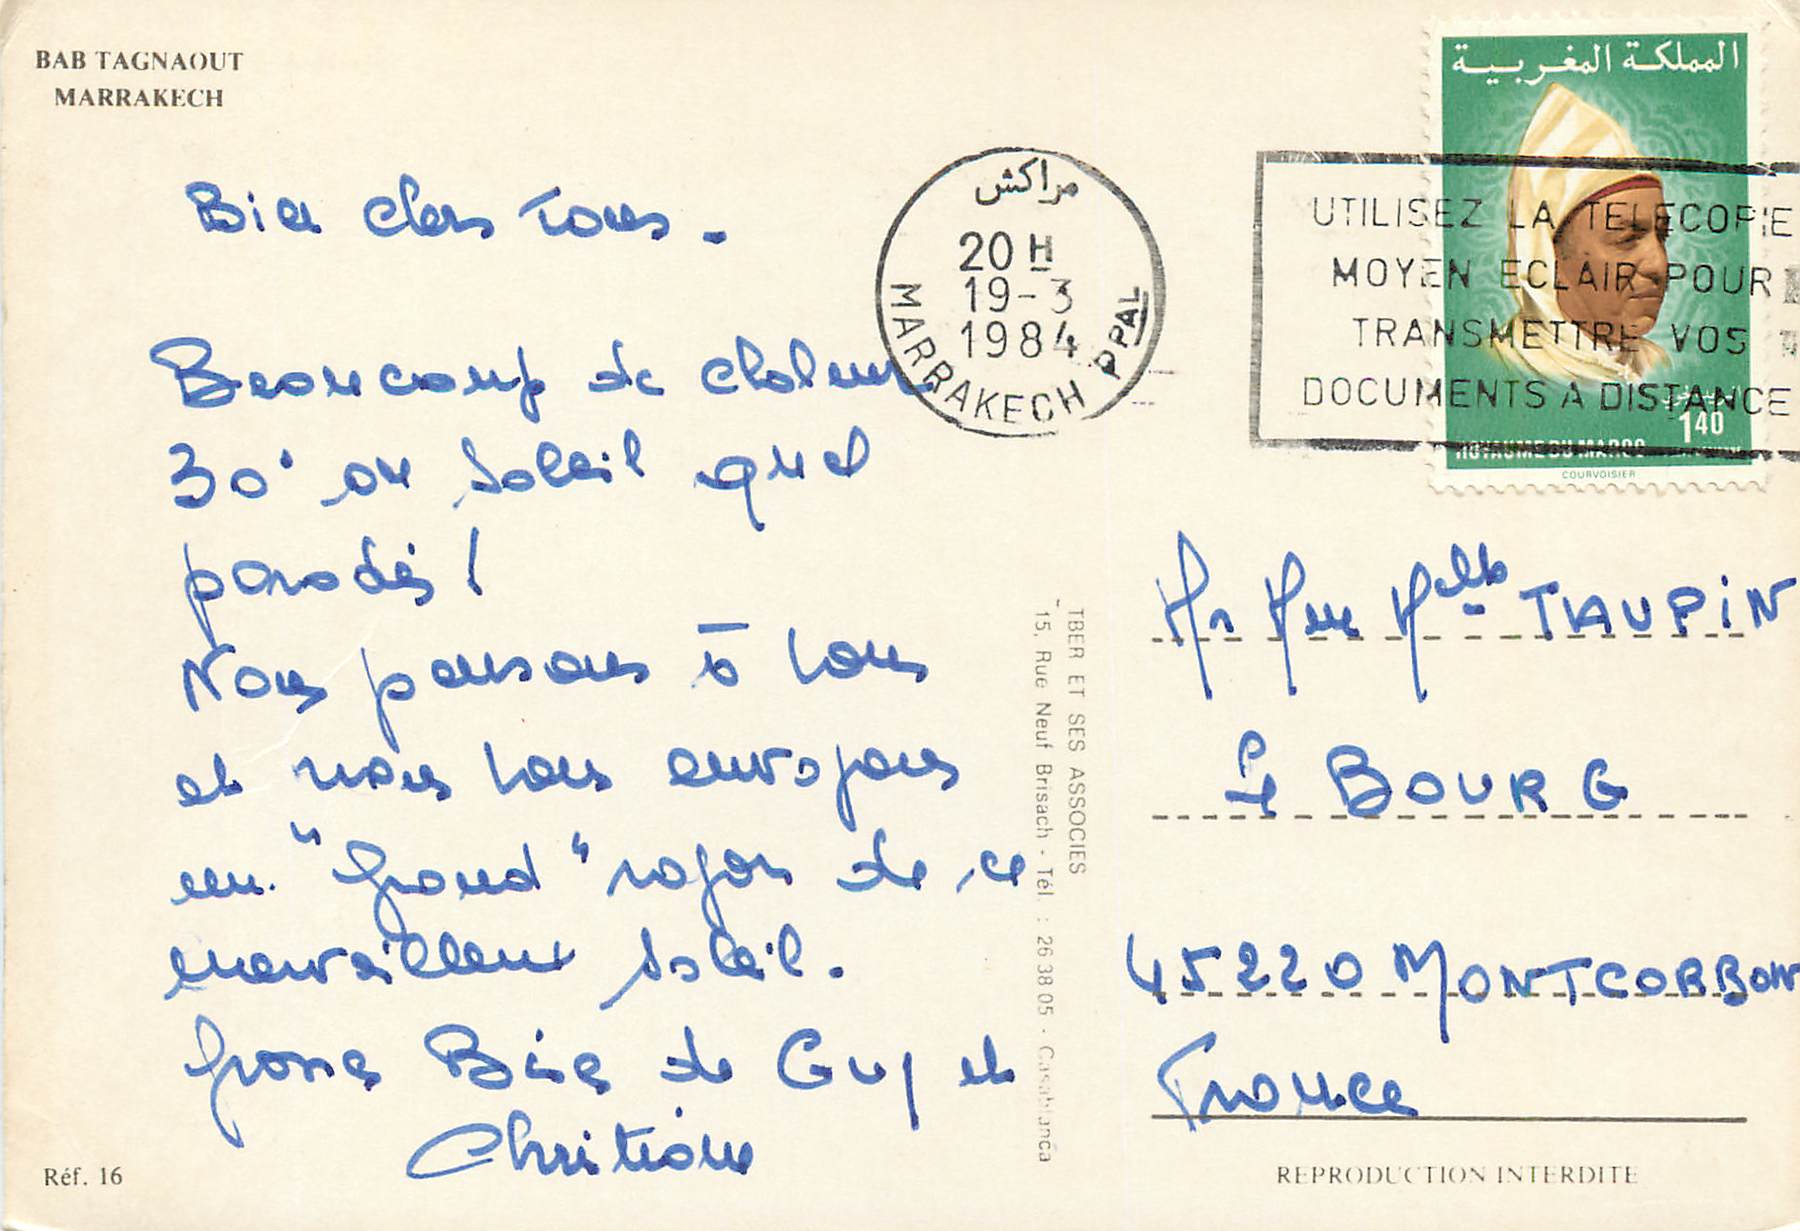 BAB TAGNAOUT
MARRAKECH
Bien chers Tous.
Beaucoup de chaleur
30° au soleil quel
paradis !
Nous pensons à tous
et nous vous envoyons
un "grand" rayon de ce
merveilleux soleil.
Grosses Bises de Guy et
Christiane
Réf. 16
مراكش
20 H
19-3
1984
MARRAKECH PPAL
UTILISEZ LA TELECOPIE
MOYEN ECLAIR POUR
TRANSMETTRE VOS
DOCUMENTS A DISTANCE
المملكة المغربية
1.40
ROYAUME DU MAROC
COURVOISIER
TBER ET SES ASSOCIES
15, Rue Neuf Brisach - Tél. : 26 38 05 - Casablanca
Mr Mme Melle TAUPIN
Le BOURG
45220 MONTCORBON
France
REPRODUCTION INTERDITE